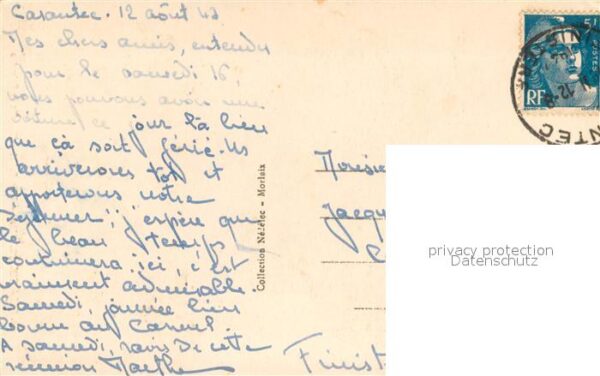 Carantec. 12 août 47
Mes chers amis, entendu
pour le samedi 16
nous pouvons avoir une
voiture ce jour là bien
que çà soit férié. Ns
arriverons tôt et
apporterons notre
déjeuner, j'espère que
le beau temps
continuera ici, c'est
vraiment admirable.
Samedi, journée bien
bonne au Carmel.
A samedi, ravis de cette
réunion Marthe
Collection Nédélec - Morlaix
5F
POSTES
RF
12-8
NTEC
Jacqu
Finist
privacy protection
Datenschutz